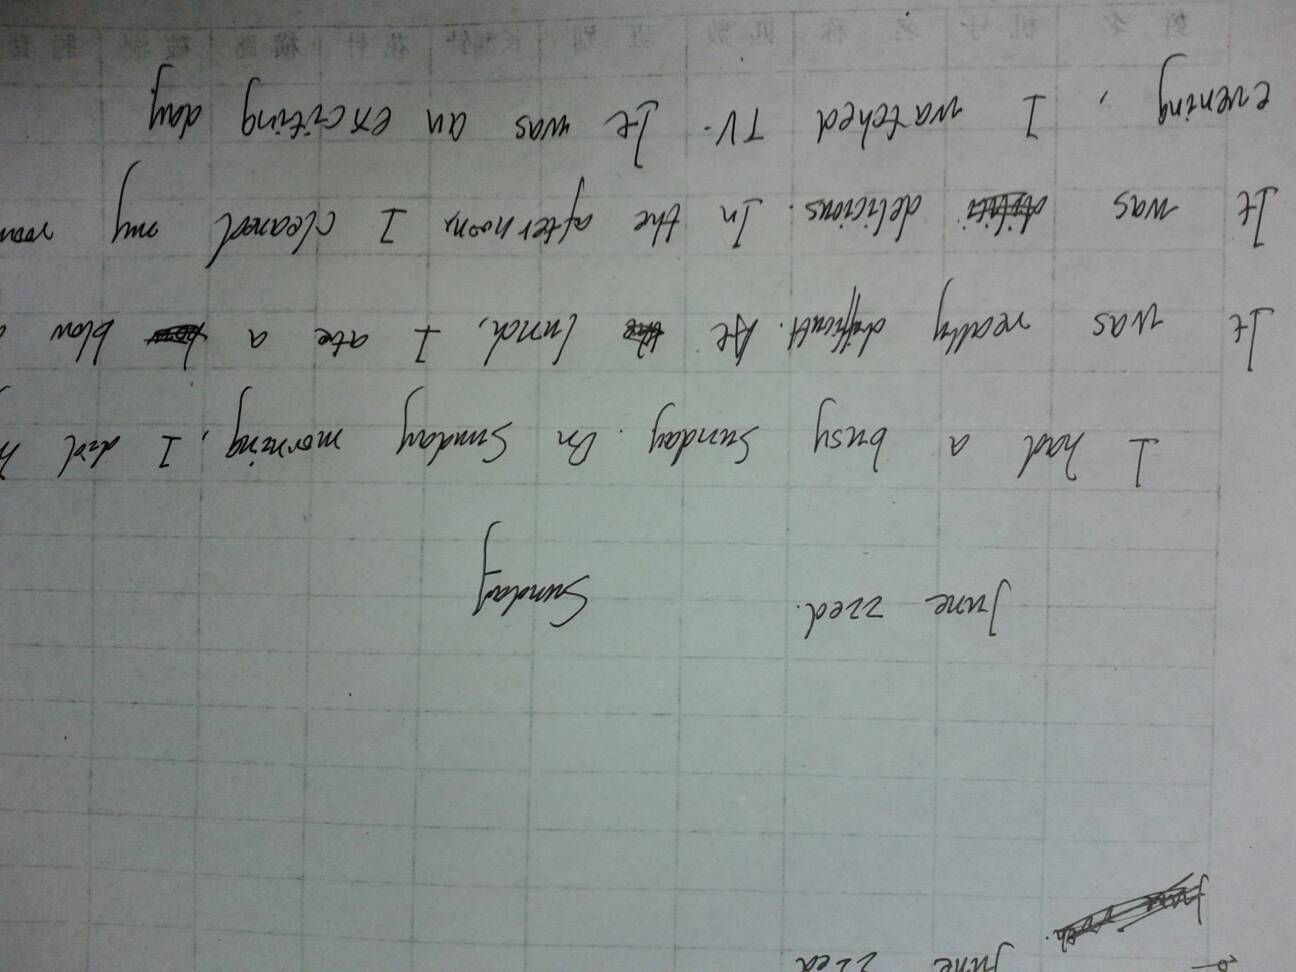 June 22ed
June 22ed. Sunday
I had a busy Sunday. On Sunday morning, I did
It was really difficult. At lunch, I ate a blow
It was delicious. In the afternoon, I cleaned my room
evening, I watched TV. It was an exciting day
姓 名 机 号 名 称 匹 数 班 别 长 花 针 横 路 破 测